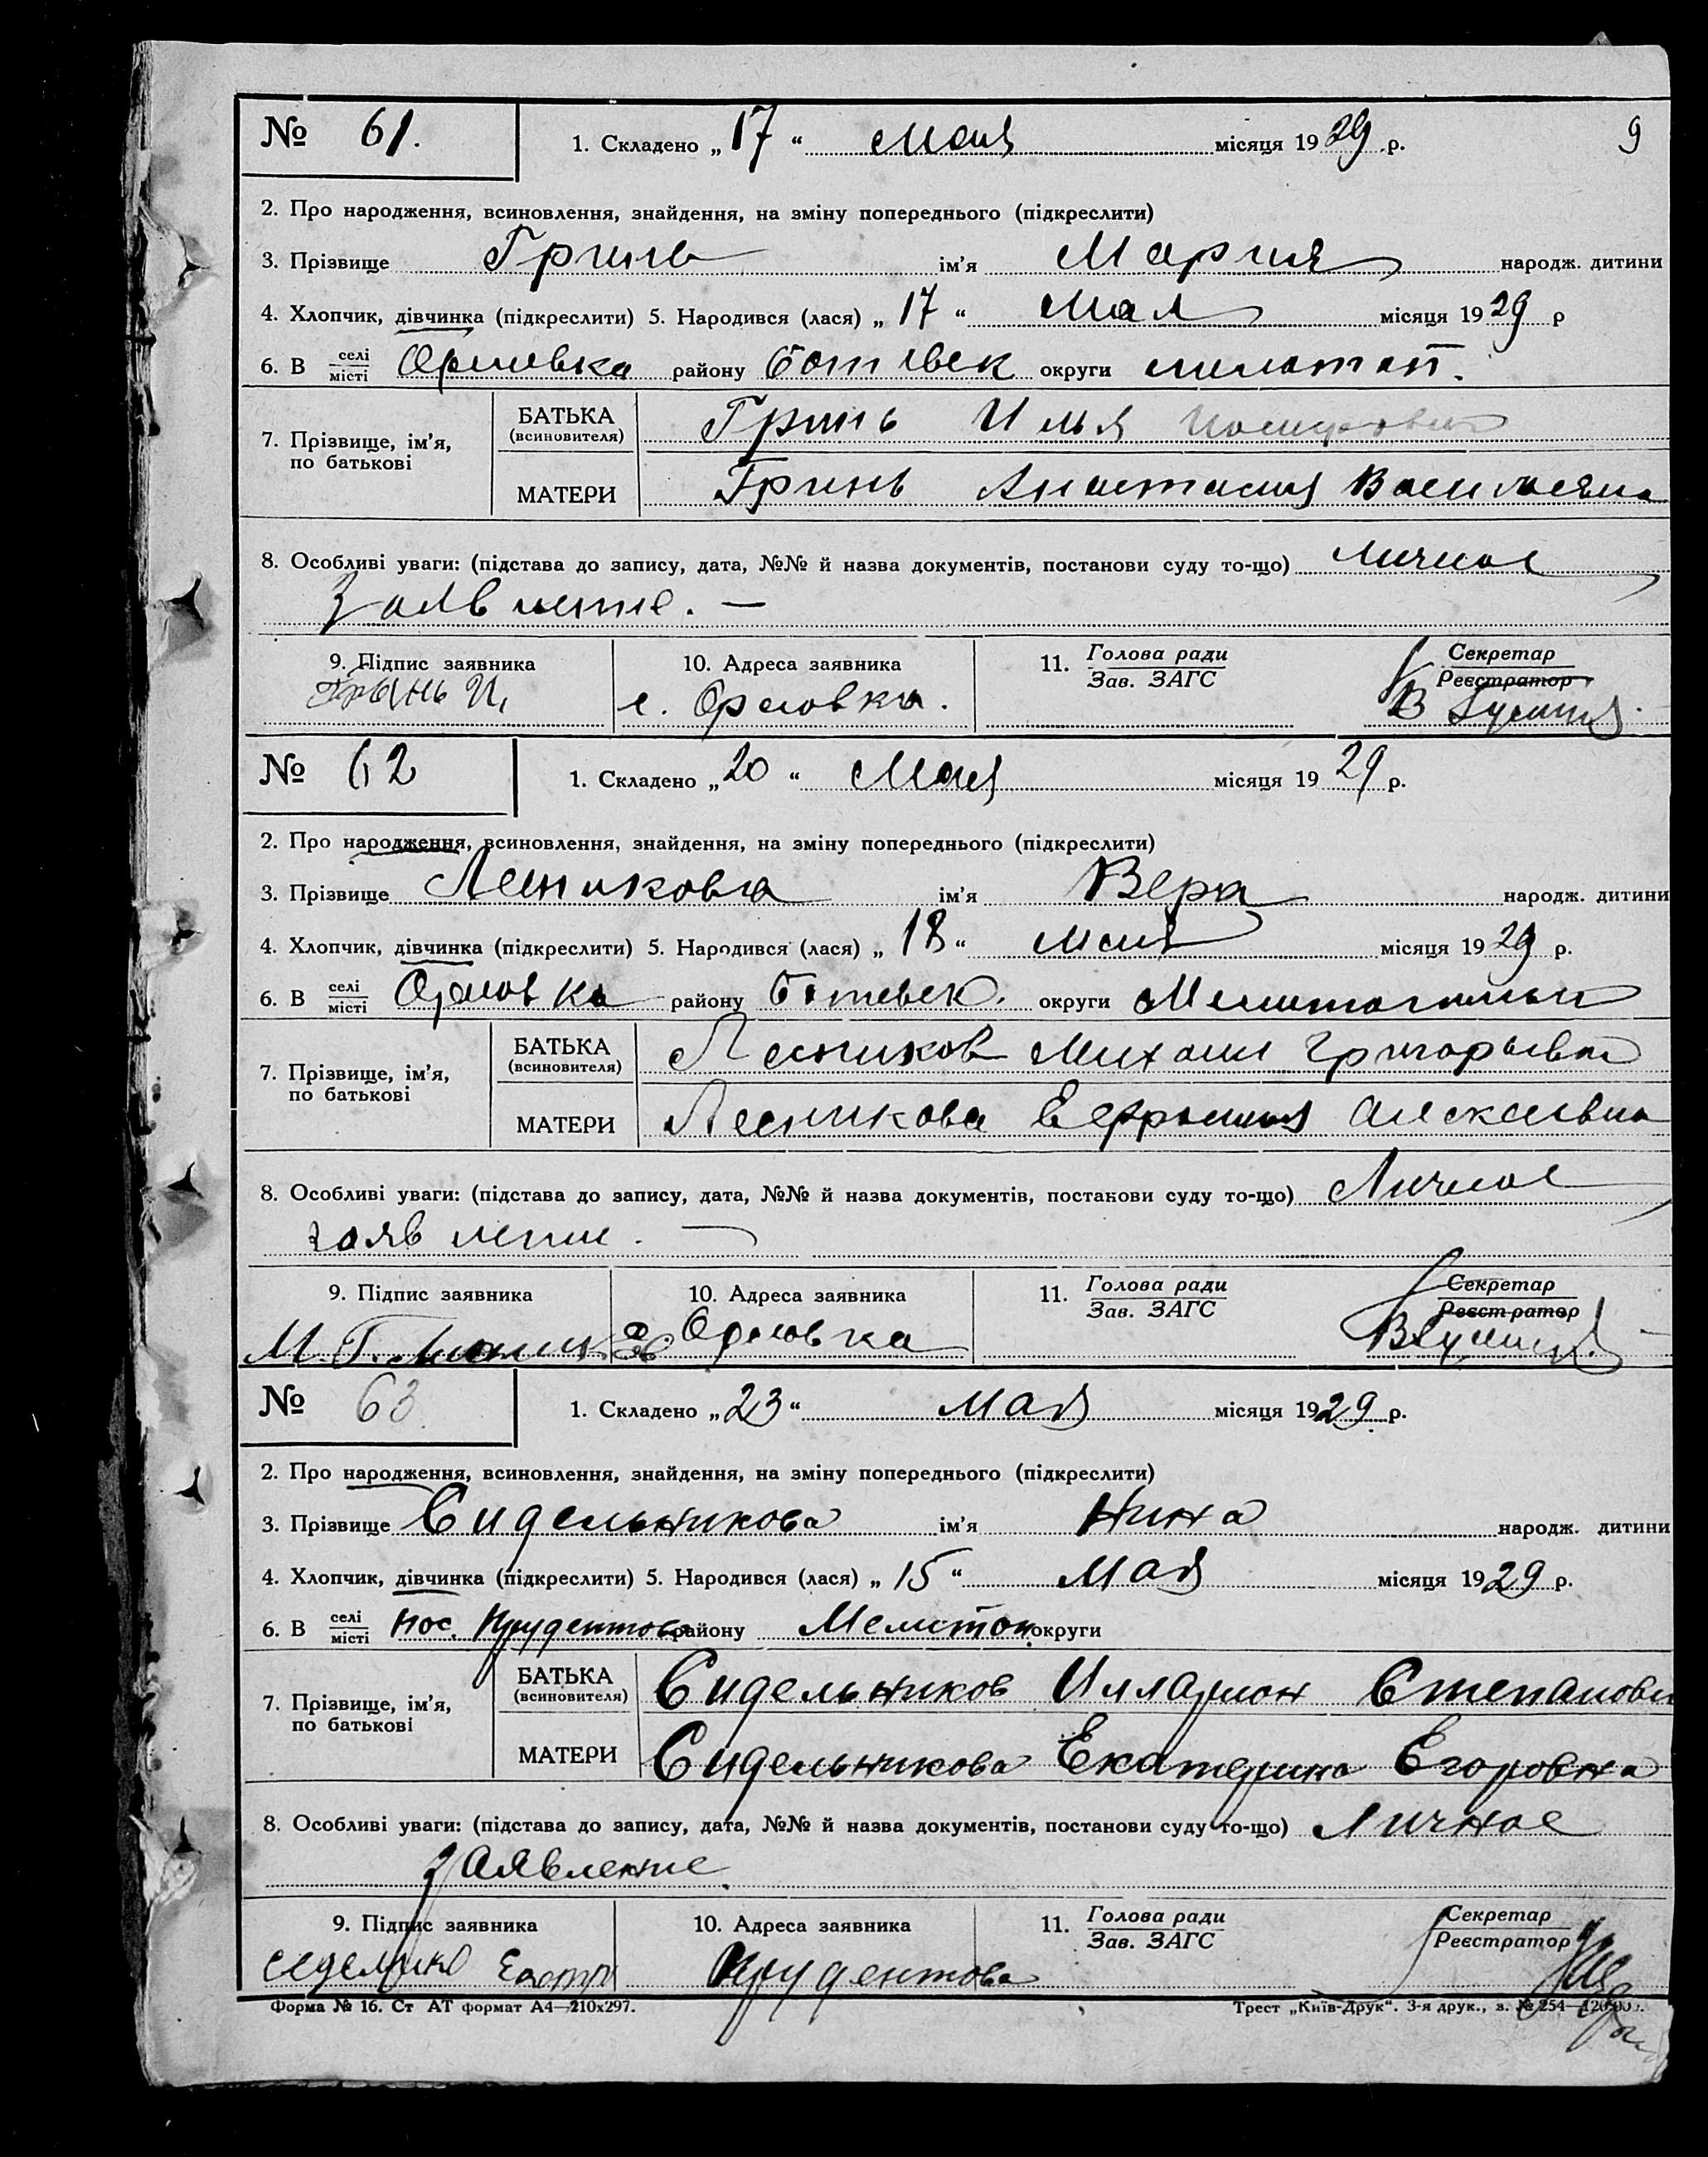 № 61. 1. Складено „17“ Мая місяця 1929 р. 9
2. Про народження, всиновлення, знайдення, на зміну попереднього (підкреслити)
3. Прізвище Гринь ім'я Мария народж. дитини
4. Хлопчик, дівчинка (підкреслити) 5. Народився (лася) „17“ Мая місяця 1929 р
6. В селі місті Орловка району округи мелитоп.
7. Прізвище, ім'я, по батькові
БАТЬКА (всиновителя) Гринь Илья
МАТЕРИ Гринь Анастасия Васильевна
8. Особливі уваги: (підстава до запису, дата, №№ й назва документів, постанови суду то-що) личное
заявление. —
9. Підпис заявника 10. Адреса заявника 11. Голова ради Зав. ЗАГС Секретар Реєстратор
Грынь И. с. Орловка.
№ 62 1. Складено „20“ Мая місяця 1929 р.
2. Про народження, всиновлення, знайдення, на зміну попереднього (підкреслити)
3. Прізвище Лесникова ім'я Вера народж. дитини
4. Хлопчик, дівчинка (підкреслити) 5. Народився (лася) „18“ мая місяця 1929 р.
6. В селі місті Орловка району Ботиевск. округи
7. Прізвище, ім'я, по батькові
БАТЬКА (всиновителя) Лесников Михаил Григорьевич
МАТЕРИ Лесникова Ефросиния Алексеевна
8. Особливі уваги: (підстава до запису, дата, №№ й назва документів, постанови суду то-що) Личное
заявление. —
9. Підпис заявника 10. Адреса заявника 11. Голова ради Зав. ЗАГС Секретар Реєстратор
М. Г. Орловка
№ 63. 1. Складено „23“ мая місяця 1929 р.
2. Про народження, всиновлення, знайдення, на зміну попереднього (підкреслити)
3. Прізвище Сидельникова ім'я Нина народж. дитини
4. Хлопчик, дівчинка (підкреслити) 5. Народився (лася) „15“ мая місяця 1929 р.
6. В селі місті пос. Прудентова району Мелитоп. округи
7. Прізвище, ім'я, по батькові
БАТЬКА (всиновителя) Сидельников Илларион Степанови
МАТЕРИ Сидельникова Екатерина Егоровна
8. Особливі уваги: (підстава до запису, дата, №№ й назва документів, постанови суду то-що) Личное
заявление.
9. Підпис заявника 10. Адреса заявника 11. Голова ради Зав. ЗАГС Секретар Реєстратор
Прудентова
Форма № 16. Ст АТ формат А4—210х297. Трест „Київ-Друк“. 3-я друк., з. № 254—